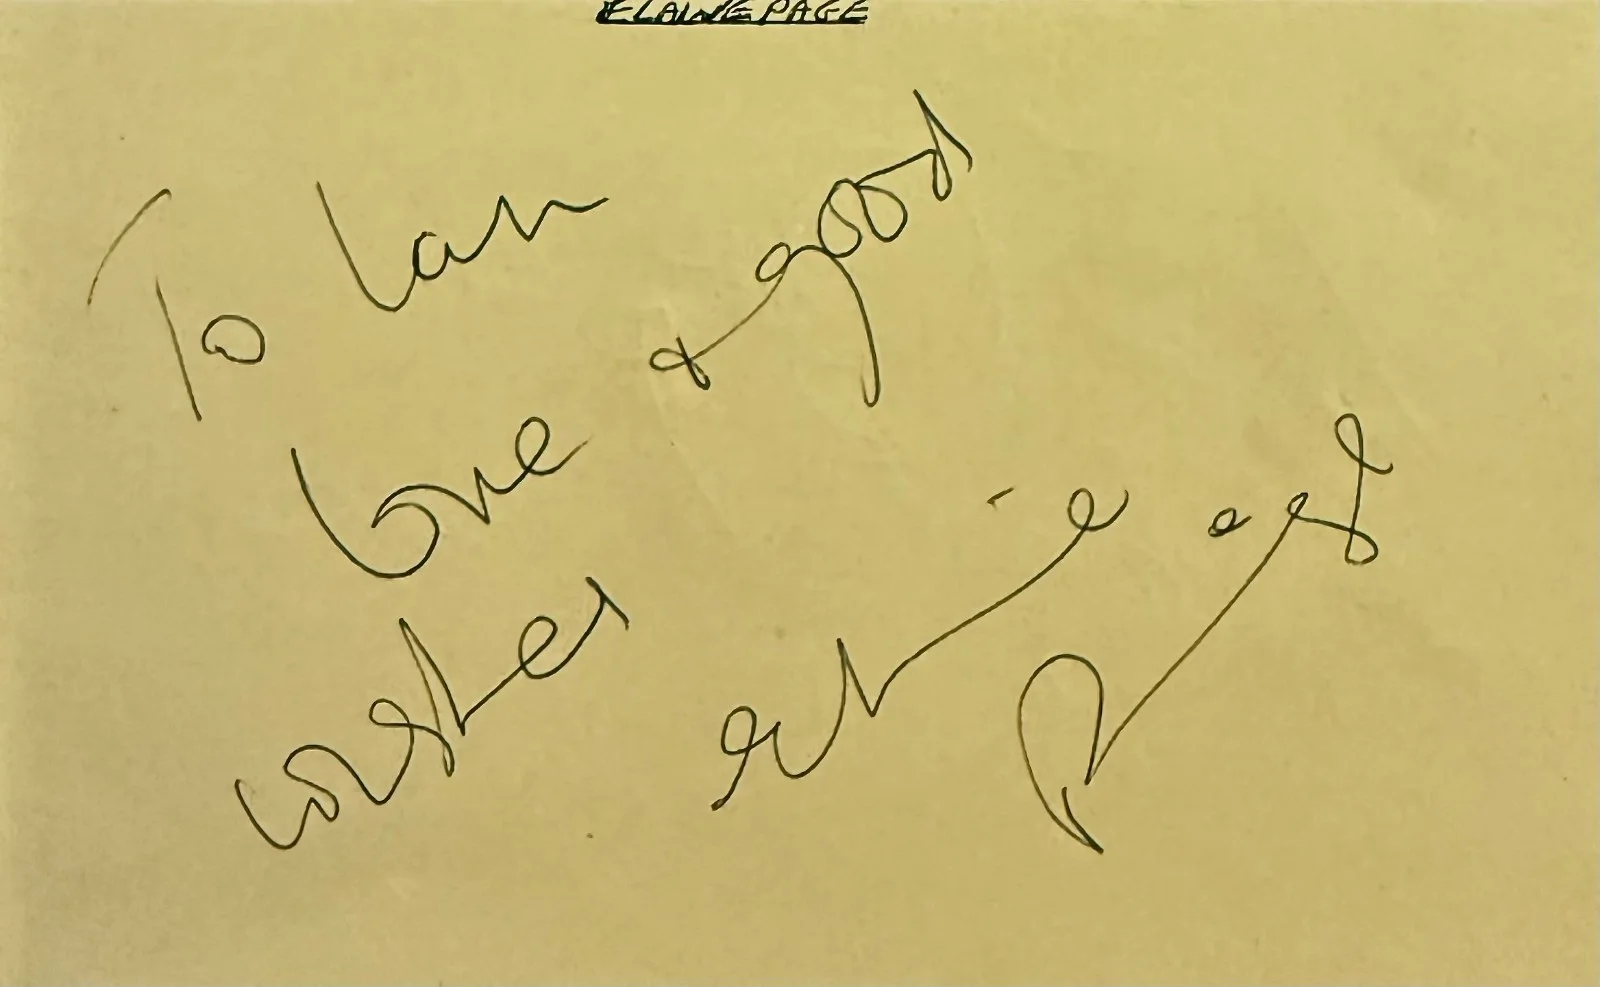 ELAINE PAGE
To Ian
Love & good
wishes
Elaine
Paige